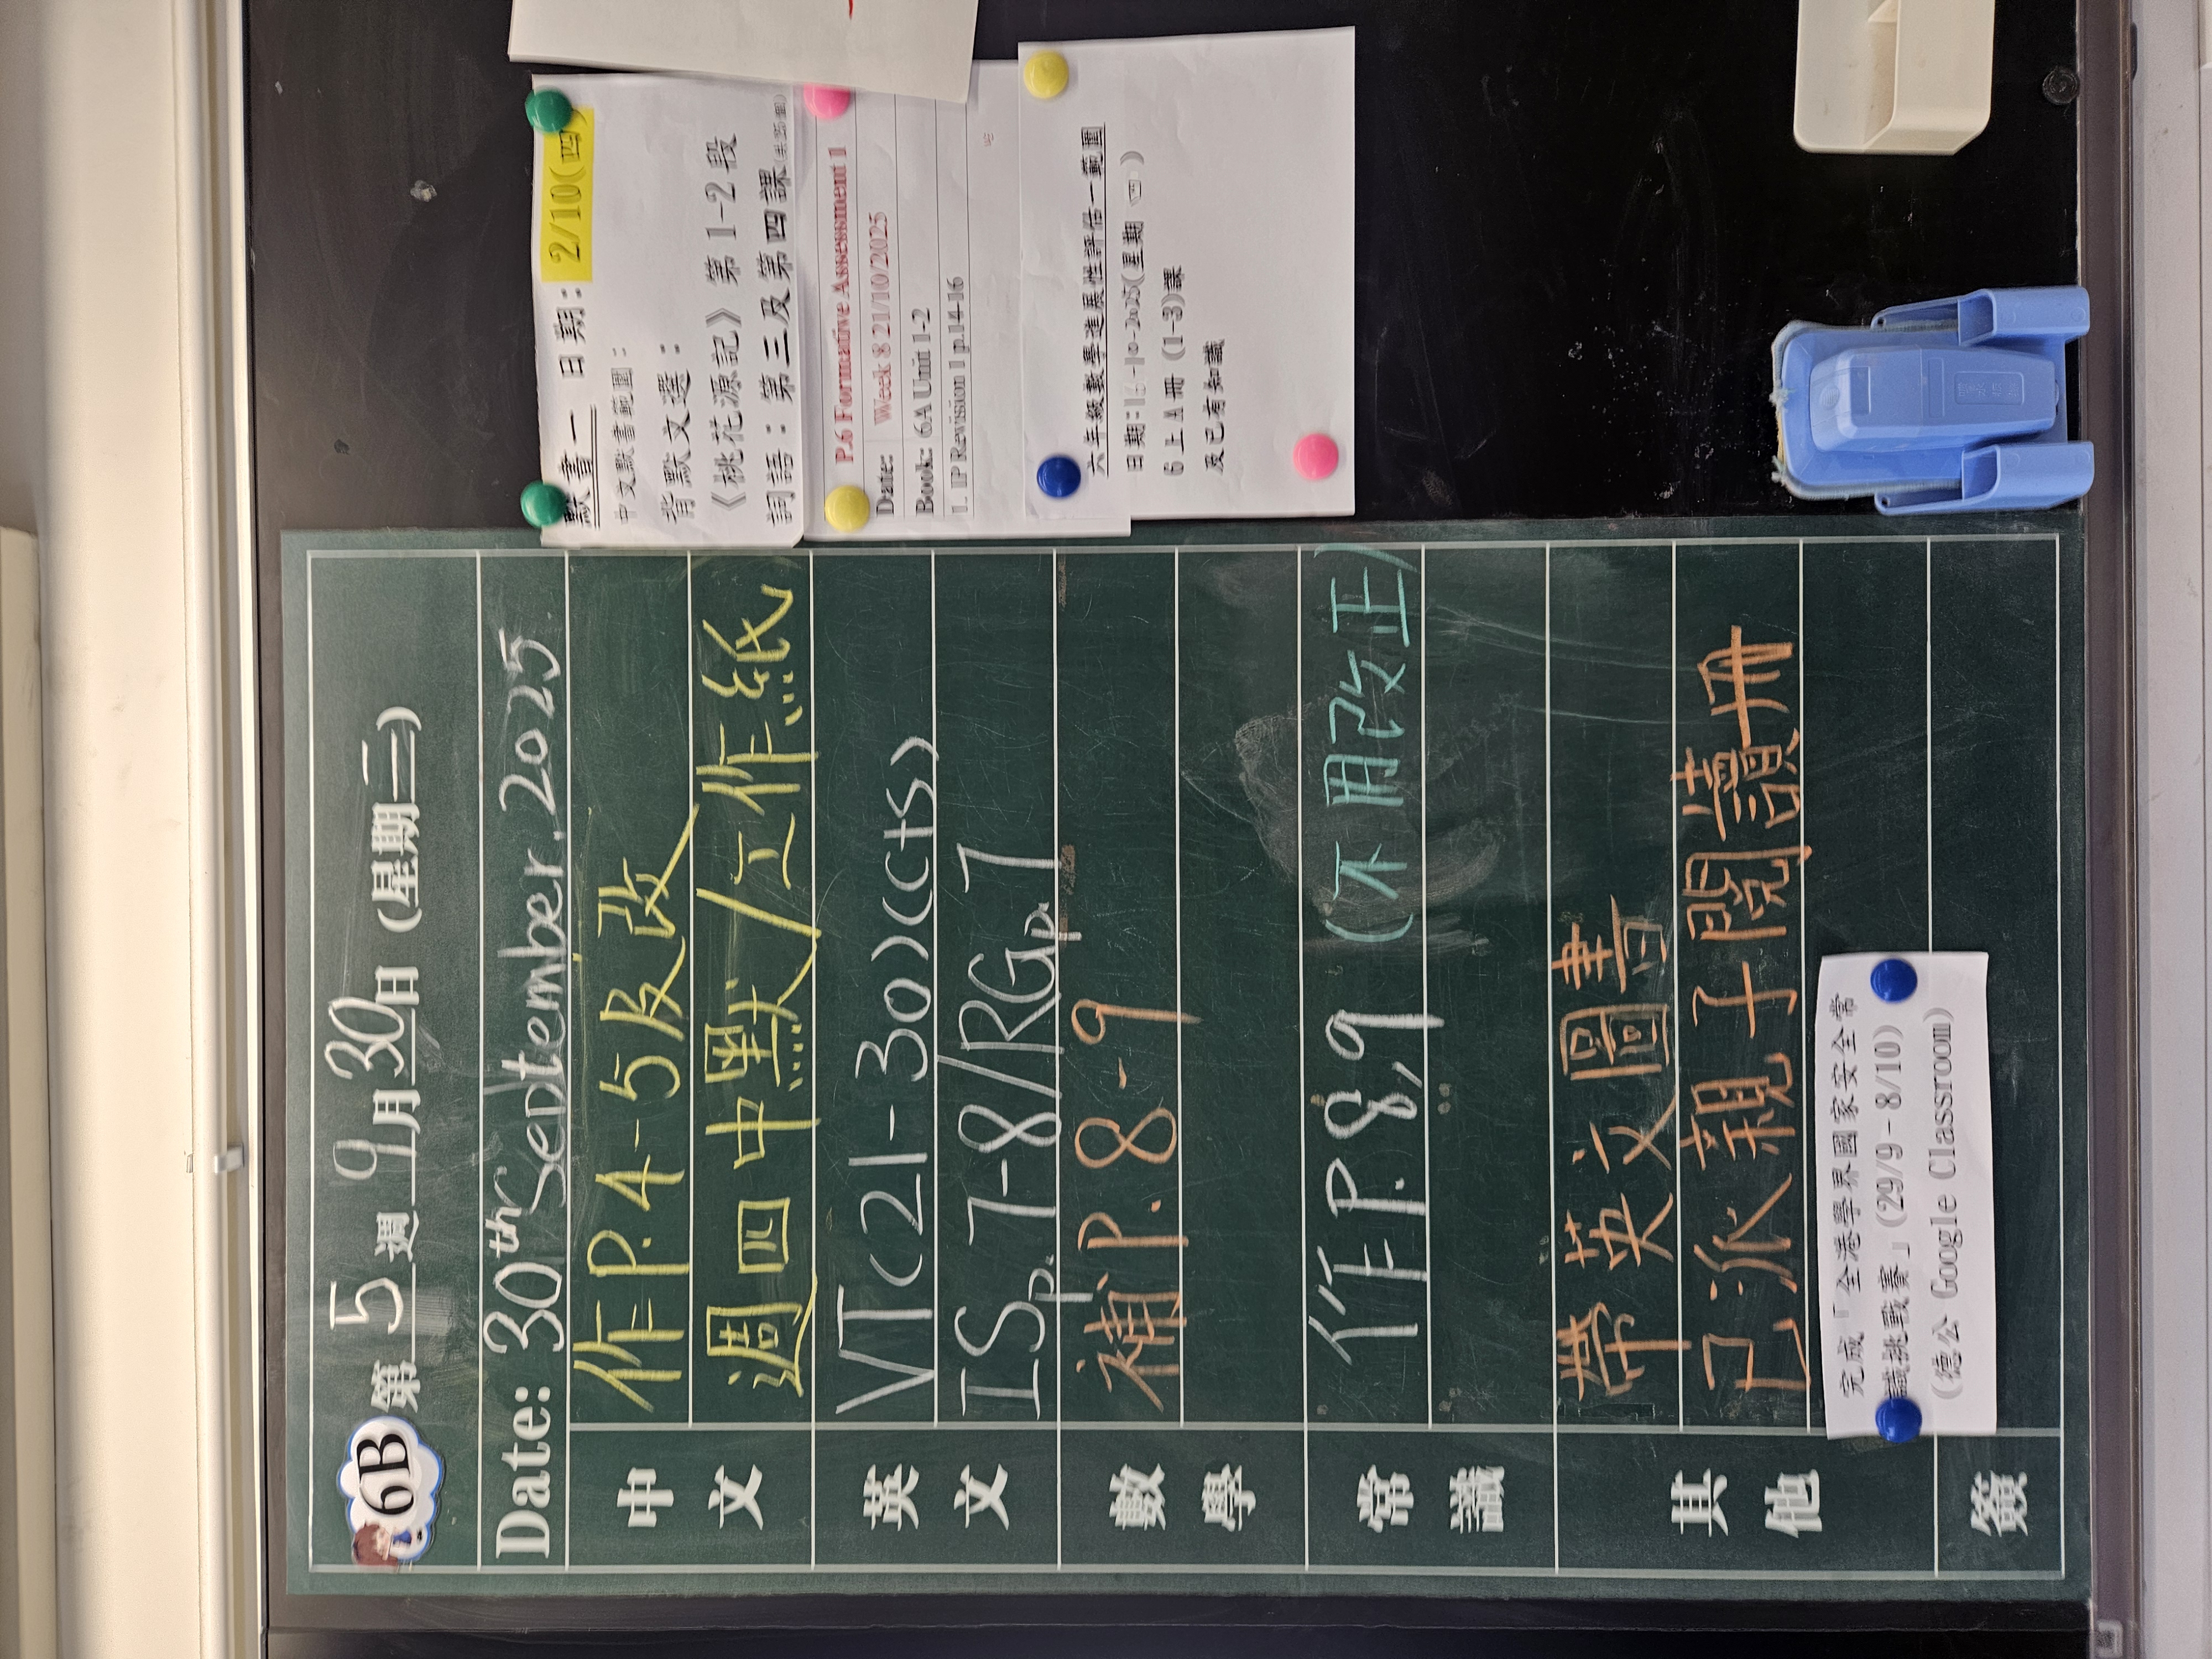 6B
第 5 週 9 月 30 日 (星期二)
Date: 30th September, 2025
中文
作P.4-5及改
週四中默/工作紙
英文
VT(21-30)(C+S)
IS p.7-8/RG p.7
數學
補P.8-9
常識
作P.8,9 (不用改正)
其他
帶英文圖書
已派親子閱讀冊
完成「全港學界國家安全常
識挑戰賽」(29/9-8/10)
(德公 Google Classroom)
簽
默書一 日期：2/10(四)
中文默書範圍：
背默文選：
《桃花源記》第 1-2 段
詞語：第三及第四課
P.6 Formative Assessment 1
Date: Week 8 21/10/2025
Book: 6A Unit 1-2
1. IP Revision 1 p.14-16
六年級數學進展性評估一範圍
日期:16-10-2025(星期 四 )
6 上 A 冊 (1-3)課
及已有知識